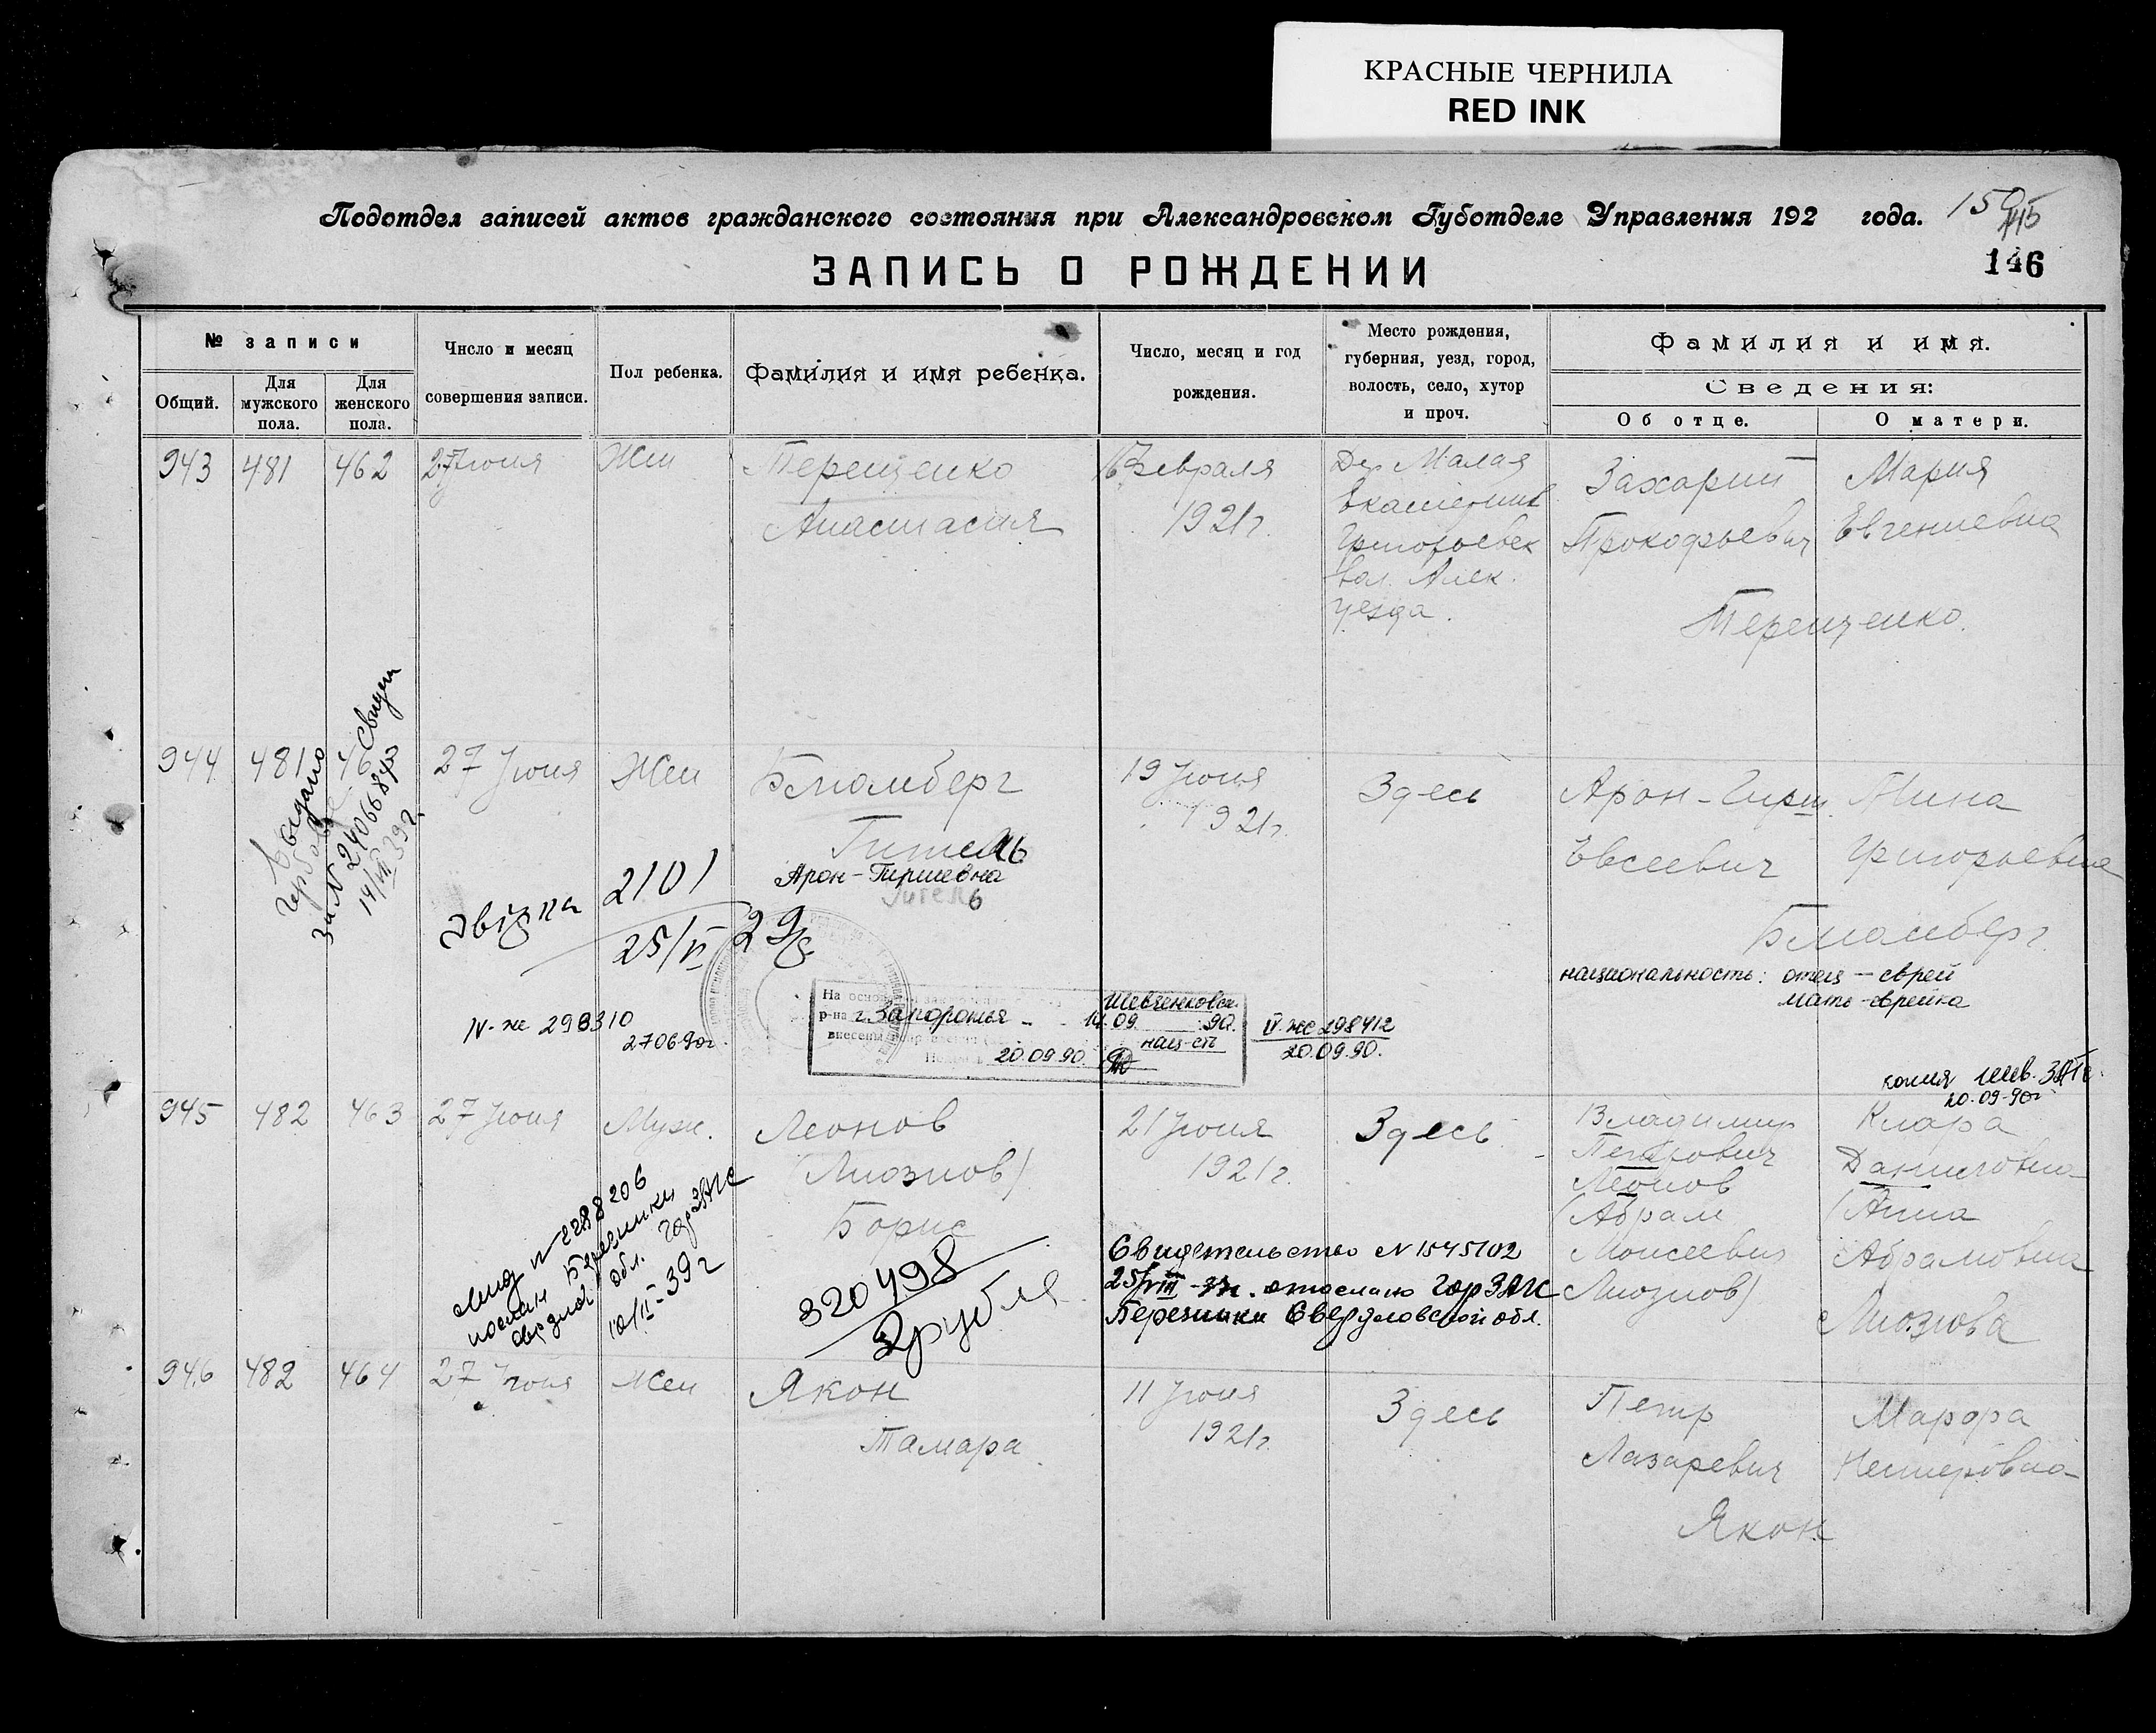 КРАСНЫЕ ЧЕРНИЛА
RED INK
Подотдел записей актов гражданского состояния при Александровском Губотделе Управления 192 года.
150
146
ЗАПИСЬ О РОЖДЕНИИ
№ записи
Общий.
Для мужского пола.
Для женского пола.
Число и месяц совершения записи.
Пол ребенка.
Фамилия и имя ребенка.
Число, месяц и год рождения.
Место рождения, губерния, уезд, город, волость, село, хутор и проч.
Фамилия и имя.
Сведения:
Об отце.
О матери.
943 481 462 27 Июня Жен Терещенко 16 Февраля Дер Малая Захарий Мария
Анастасия 1921г. Екатерин Прокофьевич Евгениевна
Григорьевск
вол. Алек.
уезда.
Терещенко.
944 481 46 27 Июня Жен Блюмберг 19 Июня Здесь Арон-Гирш Мина
1921г.
Гитель Евсеевич Григорьевна
Арон-Гиршевна
Гитель
Блюмберг
Выдано
свидет
за № 240668
14/VII 39г.
2101
25/VI 29
национальность: отец - еврей
мать - еврейка
IV-же 298310
270690г.
На основ
р-на г. Запорожья
внесены
20.09.90.
Шевченковск.
14.09 90.
нац-сть
IV-же 298412
20.09.90.
копия шев. ЗАГС
20.09-90г
945 482 463 27 Июня Муж. Леонов 21 Июня Здесь Владимир Клара
(Лиознов) 1921г. Петрович Даниловна
Леонов
Борис (Абрам (Анна
Моисеевич Абрамовна
Лиознов) Лиознова
свид № 2288206
послан Березники
свердлов обл. ГорЗАГС
10/II-39г
320498
2 рубля
Свидетельство № 1545102
25/VIII-37г. отослано ГорЗАГС
Березники Свердловской обл.
946 482 464 27 Июня Жен Якон 11 Июня Здесь Петр Марфа
Тамара 1921г. Лазаревич Нестеровна
Якон